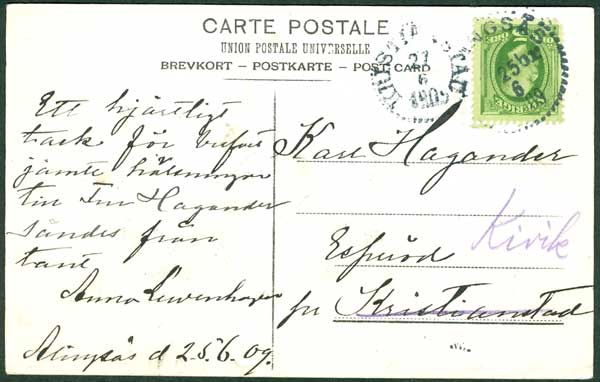 CARTE POSTALE
UNION POSTALE UNIVERSELLE
BREVKORT – POSTKARTE – POST CARD
KRISTIANSTAD
27
6
1909
INGSÅS
25 6
6
Ett hjärtligt
tack för brefvet
jämte hälsningar
till Fru Hagander
sändes från
tant
Anna Lewenhagen
Alingsås d. 25.6.09.
Karl Hagander
Esperöd
Kivik
pr Kristianstad